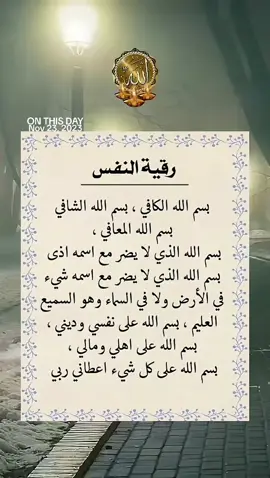 الله
ON THIS DAY
Nov 23, 2023
رقية النفس
بسم الله الكافي ، بسم الله الشافي
بسم الله المعافي ،
بسم الله الذي لا يضر مع اسمه اذى
بسم الله الذي لا يضر مع اسمه شيء
في الأرض ولا في السماء وهو السميع
العليم ، بسم الله على نفسي وديني ،
بسم الله على اهلي ومالي ،
بسم الله على كل شيء اعطاني ربي